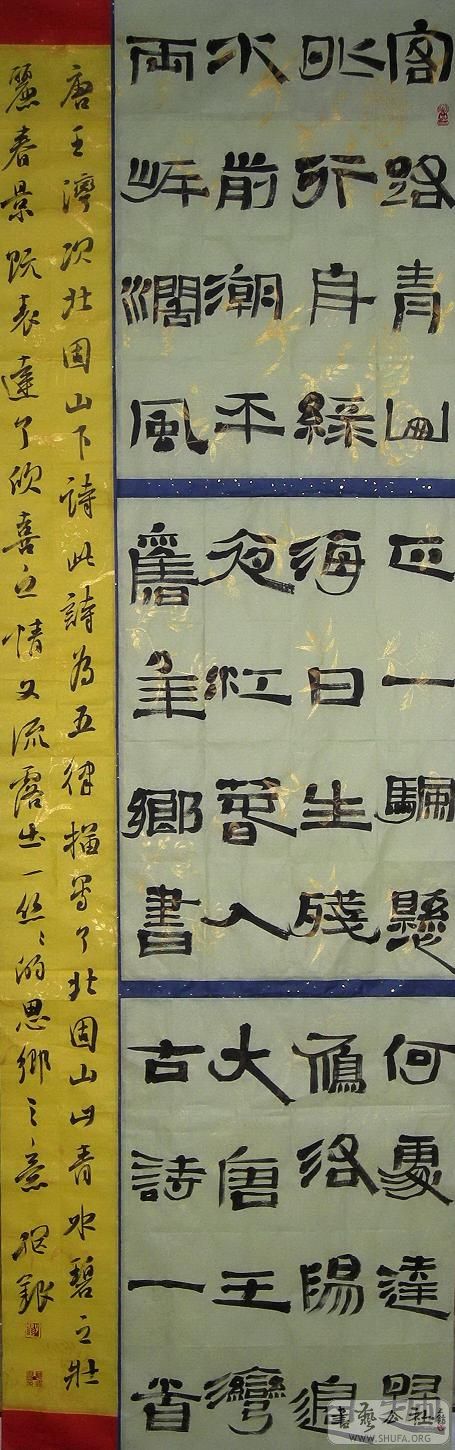 客路青山
外行舟綠
水前潮平
兩岸闊風
正一颿懸
海日生殘
夜江春入
舊年鄉書
何處達歸
雁洛陽邊
大唐王灣
古詩一首
唐王灣次北固山下詩此詩為五律描寫了北固山山青水碧之壯
麗春景既表達了欣喜之情又流露出一丝丝的思鄉之意
書藝公社
WWW.SHUFA.ORG